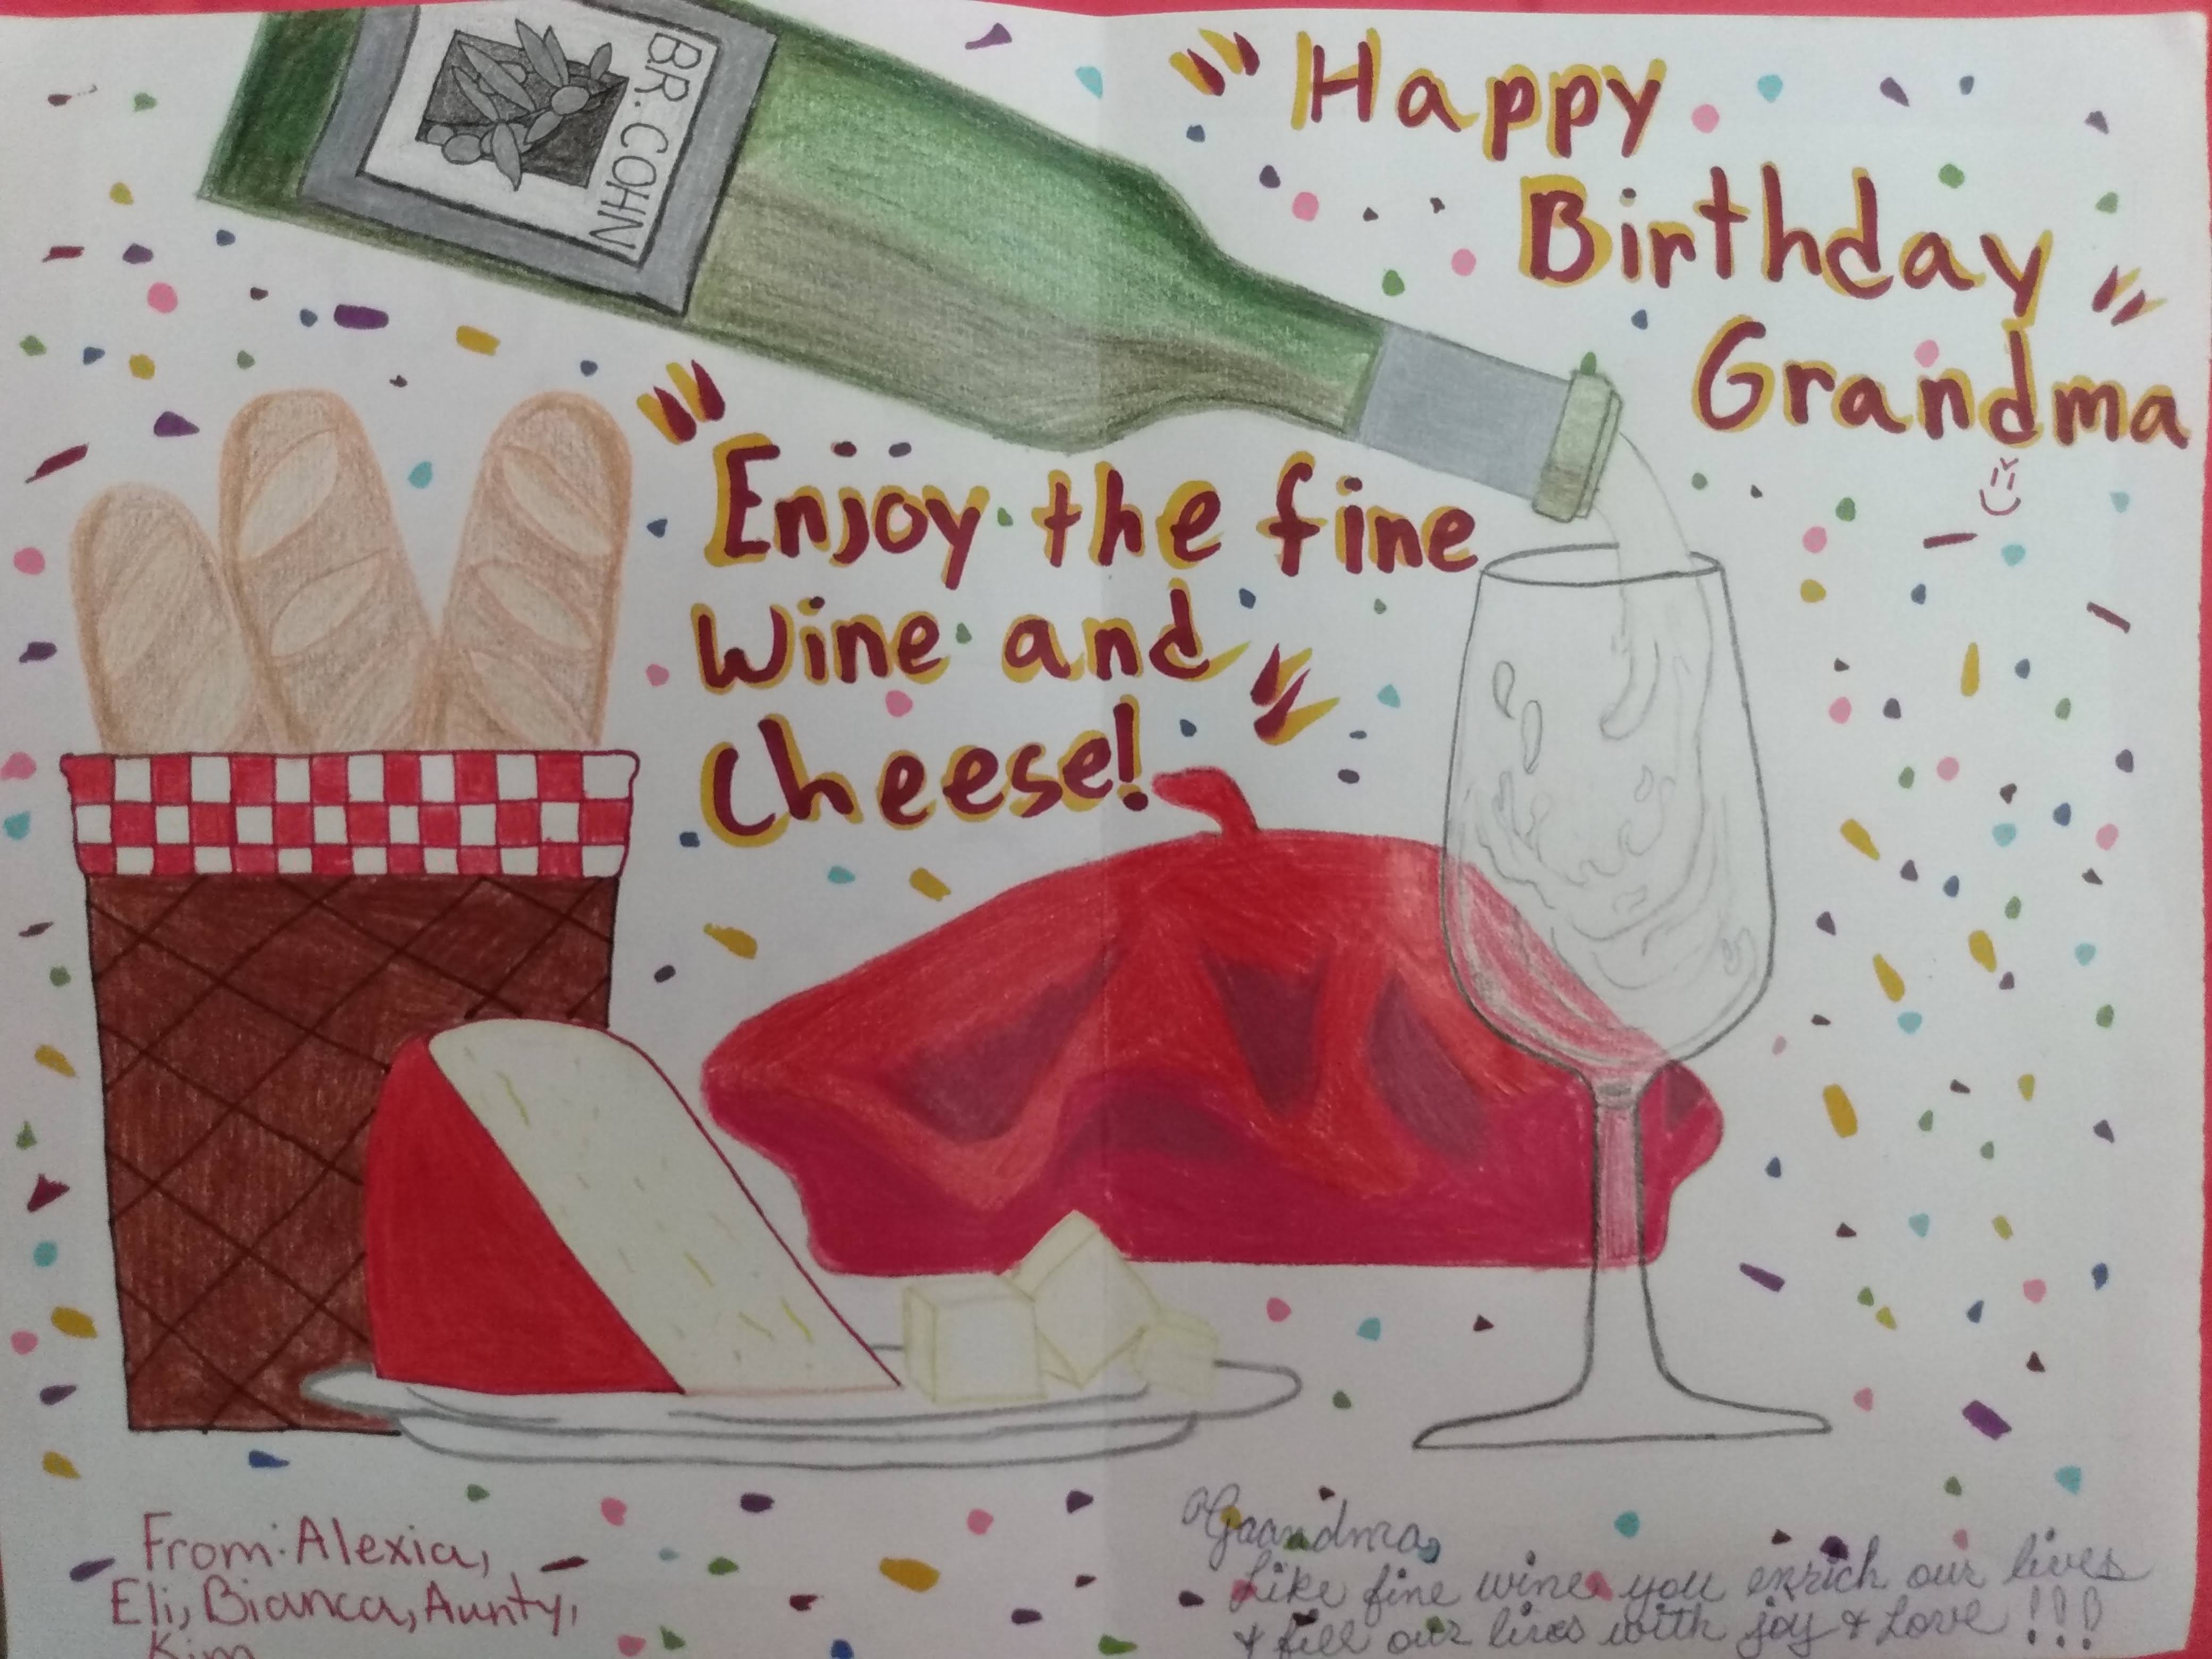 BR. COHN
"Happy
Birthday"
Grandma
"Enjoy the fine
Wine and"
Cheese!
From: Alexia,
Eli, Bianca, Aunty,
Kim
Grandma,
Like fine wine you enrich our lives
& fill our lives with joy & Love!!!